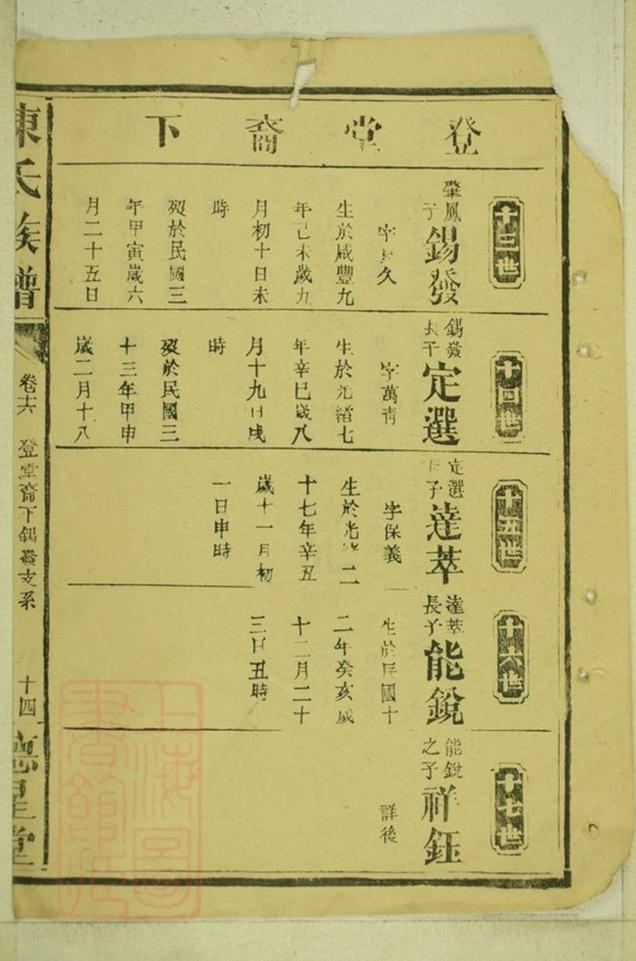 登堂裔下
十三世
肇鳳
子
錫發
生於咸豐九
年己未歲九
月初十日未
時
歿於民國三
年甲寅歲六
月二十五日
十四世
錫發
長子
定選
字萬青
生於光緒七
年辛巳歲八
月十九日戌
時
歿於民國三
十三年甲申
歲二月十八
十五世
定選
子
達萃
字保義
生於光 二
十七年辛丑
歲十一月初
一日申時
十六世
達萃
長子
能銳
生於民國十
二年癸亥歲
十二月二十
三日丑時
十七世
能銳
之子
祥鈺
詳後
陳氏族譜
卷十六
登堂裔下錫發支系
十四
德星堂
上海圖
書館藏